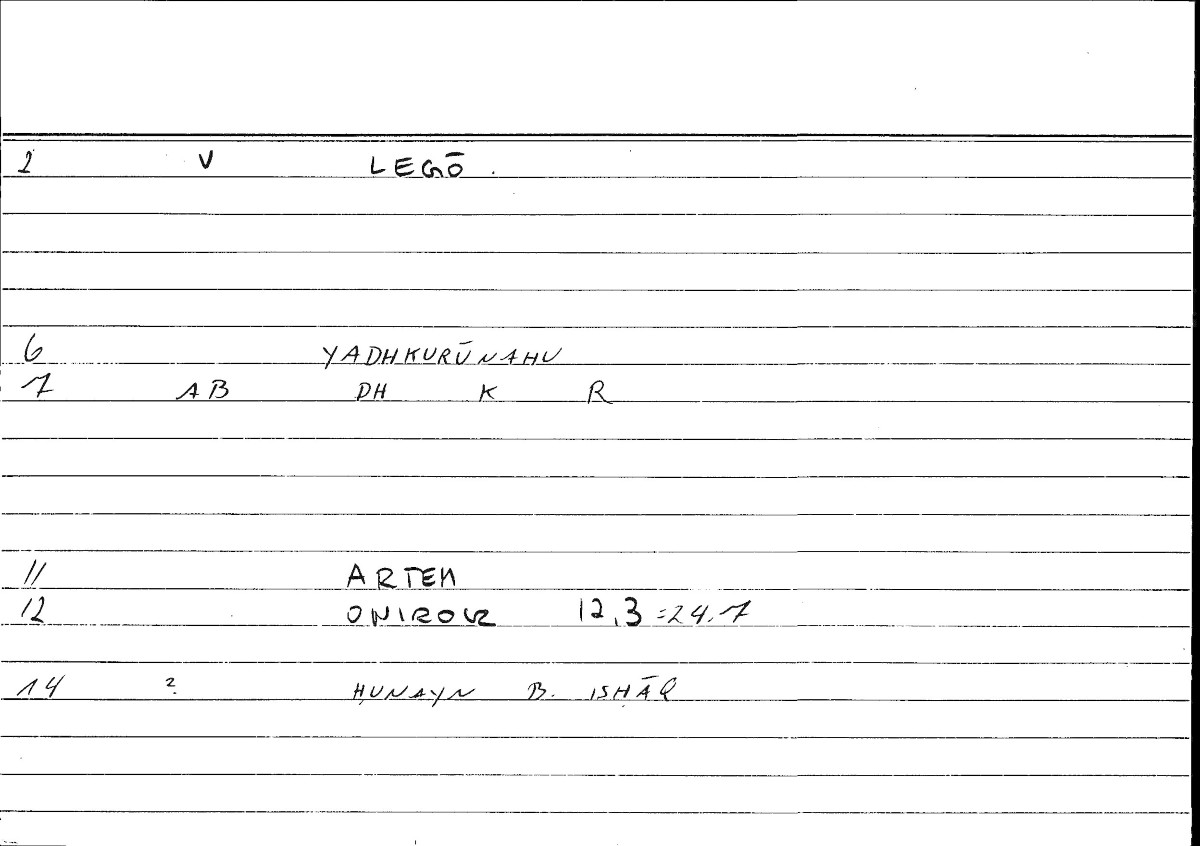 2 V LEGŌ.
6 YADHKURŪNAHU
7 AB DH K R
11 ARTEM
12 ONIROCR 12,3=24.7
14 ? ḤUNAYN B. ISḤĀQ